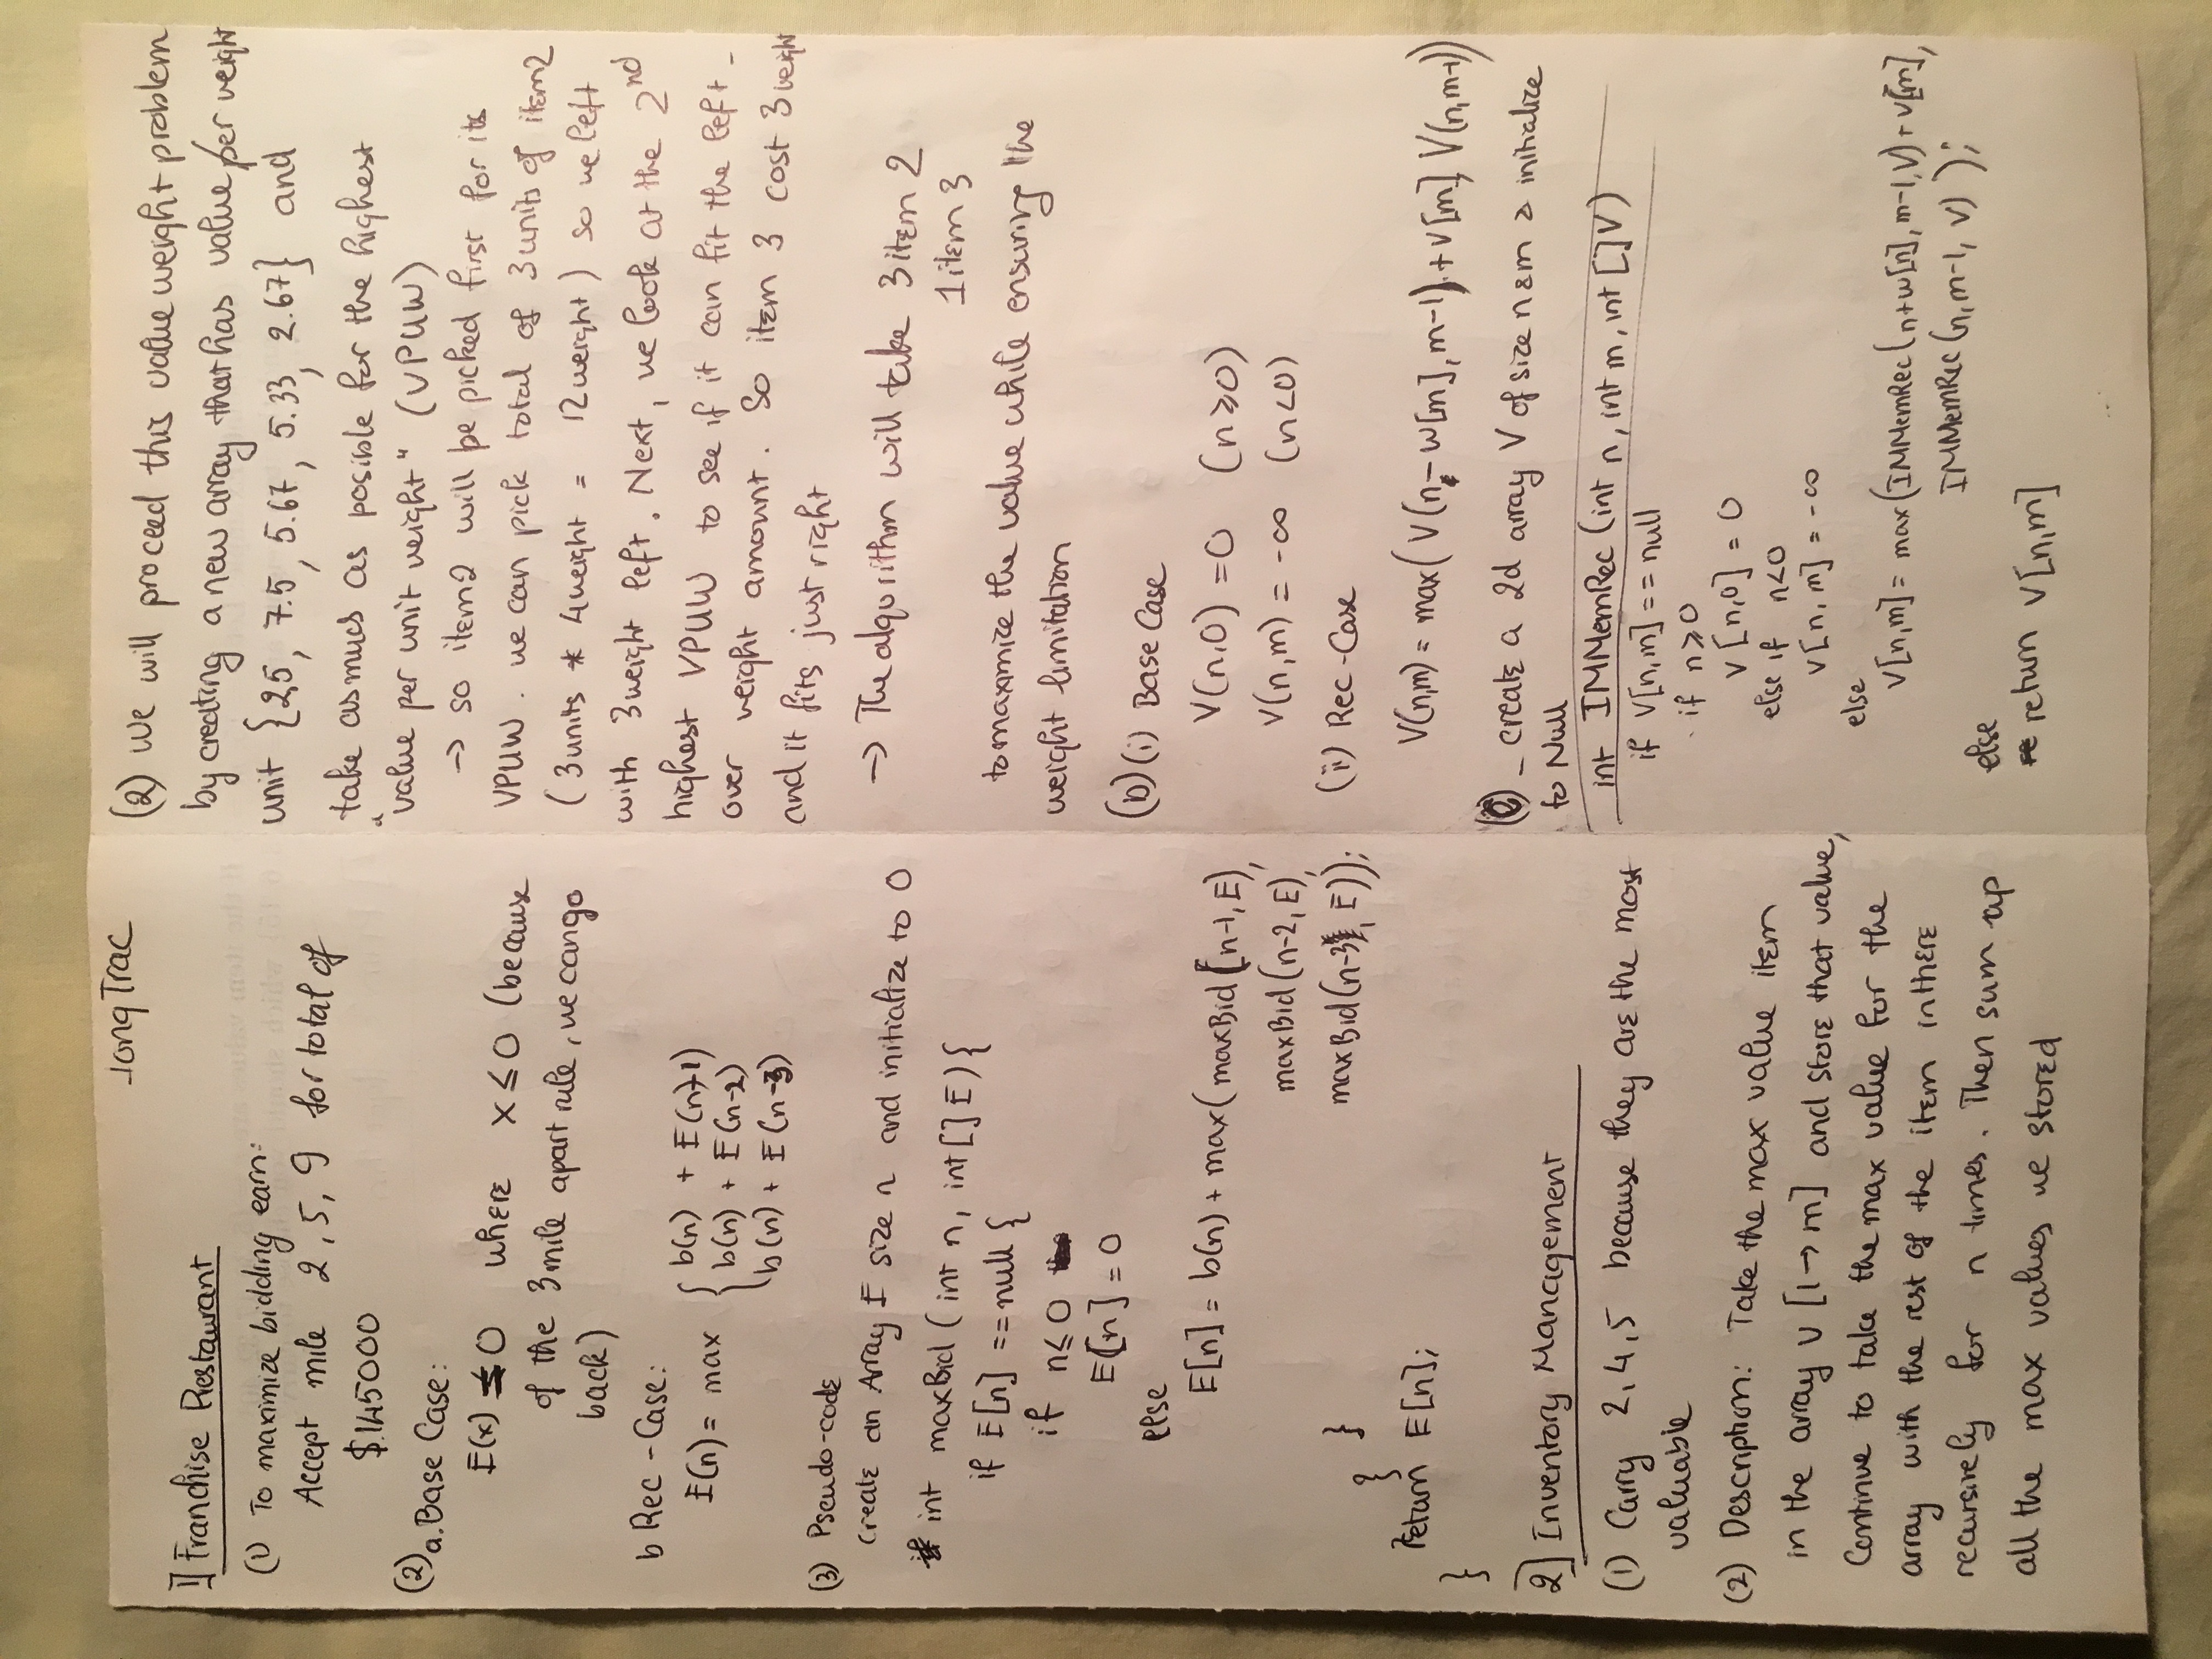 TongTrac
1] Franchise Restaurant
(1) To maximize bidding earn:
Accept mile 2, 5, 9 for total of
$145000
(2) a. Base Case:
E(x) = 0 where x ≤ 0 (because
of the 3mile apart rule, we can go
back)
b Rec-Case:
E(n) = max { b(n) + E(n-1)
b(n) + E(n-2)
b(n) + E(n-3)
(3) Pseudo-code
create an Array E size n and initialize to 0
int maxBid (int n, int[] E) {
if E[n] == null {
if n ≤ 0
E[n] = 0
else
E[n] = b(n) + max(maxBid(n-1, E),
maxBid(n-2, E),
maxBid(n-3, E));
}
}
return E[n];
}
2] Inventory Management
(1) Carry 2, 4, 5 because they are the most
valuable
(2) Description: Take the max value item
in the array v [1→m] and store that value,
Continue to take the max value for the
array with the rest of the item in there
recursively for n times. Then sum up
all the max values we stored
(2) We will proceed this value weight problem
by creating a new array that has value per weight
unit {2,5, 7.5, 5.67, 5.33, 2.67} and
take as much as posible for the highest
"value per unit weight" (VPUW)
→ so item2 will be picked first for its
VPUW. we can pick total of 3units of item2
(3units * 4weight = 12weight) so we left
with 3weight left. Next, we look at the 2nd
highest VPUW to see if it can fit the left-
over weight amount. So item 3 cost 3weight
and it fits just right
→ The algorithm will take 3 item 2
1 item 3
to maximize the value while ensuring the
weight limitation
(b) (i) Base Case
V(n,0) = 0 (n ≥ 0)
V(n,m) = -∞ (n<0)
(ii) Rec-Case
V(n,m) = max(V(n-w[m], m-1) + v[m], V(n,m-1))
(c) - create a 2d array V of size n & m & initialize
to Null
int IMMemRec (int n, int m, int []V)
if V[n,m] == null
if n ≥ 0
V[n,0] = 0
else if n<0
V[n,m] = -∞
else
V[n,m] = max(IMMemRec(n+w[n], m-1, V) + v[m],
IMMemRec(n, m-1, V));
else
return V[n,m]